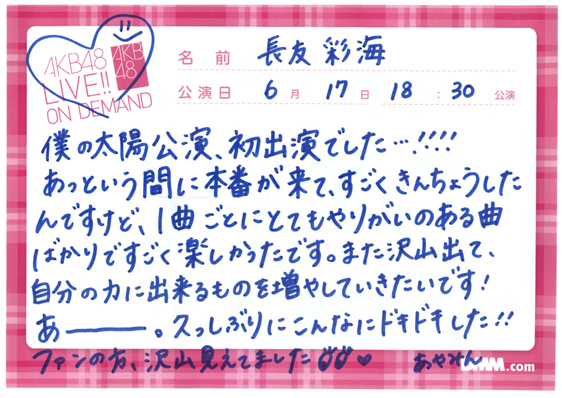 AKB48
LIVE!!
ON DEMAND
AKB
48
名前 長友彩海
公演日 6月17日 18:30公演
僕の太陽公演、初出演でした…!!!!
あっという間に本番が来て、すごくきんちょうした
んですけど、1曲ごとにとてもやりがいのある曲
ばかりですごく楽しかったです。また沢山出て、
自分の力に出来るものを増やしていきたいです!
あ――――。久っしぶりにこんなにドキドキした!!
ファンの方、沢山見えてました♥
あやみん
DMM.com